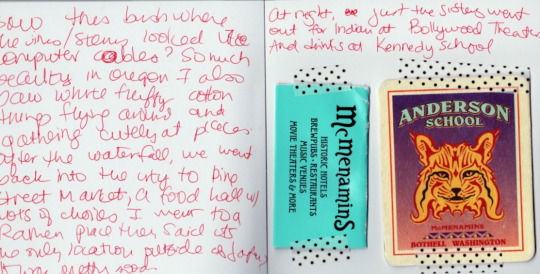 saw this bush where
the vines/stems looked like
computer cables? So much
beauty in oregon I also
saw white fluffy cotton
things flying around and
gathering cutely at places
after the waterfall, we went
back into the city to Pine
Street Market, a food hall w/
lots of choices I went to a
Ramen place they said its
the only location outside of Japan
pretty good
At right, just the sisters went
out for Indian at Bollywood Theater
And drinks at Kennedy School
McMenamins
HISTORIC HOTELS
BREWPUBS • RESTAURANTS
MUSIC VENUES
MOVIE THEATERS & MORE
ANDERSON
SCHOOL
McMENAMINS
BOTHELL WASHINGTON